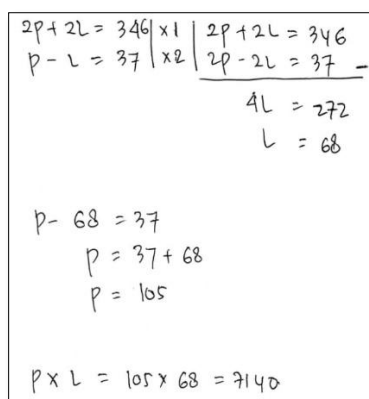 2p + 2L = 346 | x1 | 2p + 2L = 346
p - L = 37 | x2 | 2p - 2L = 37 -
4L = 272
L = 68
p - 68 = 37
p = 37 + 68
p = 105
p x L = 105 x 68 = 7140